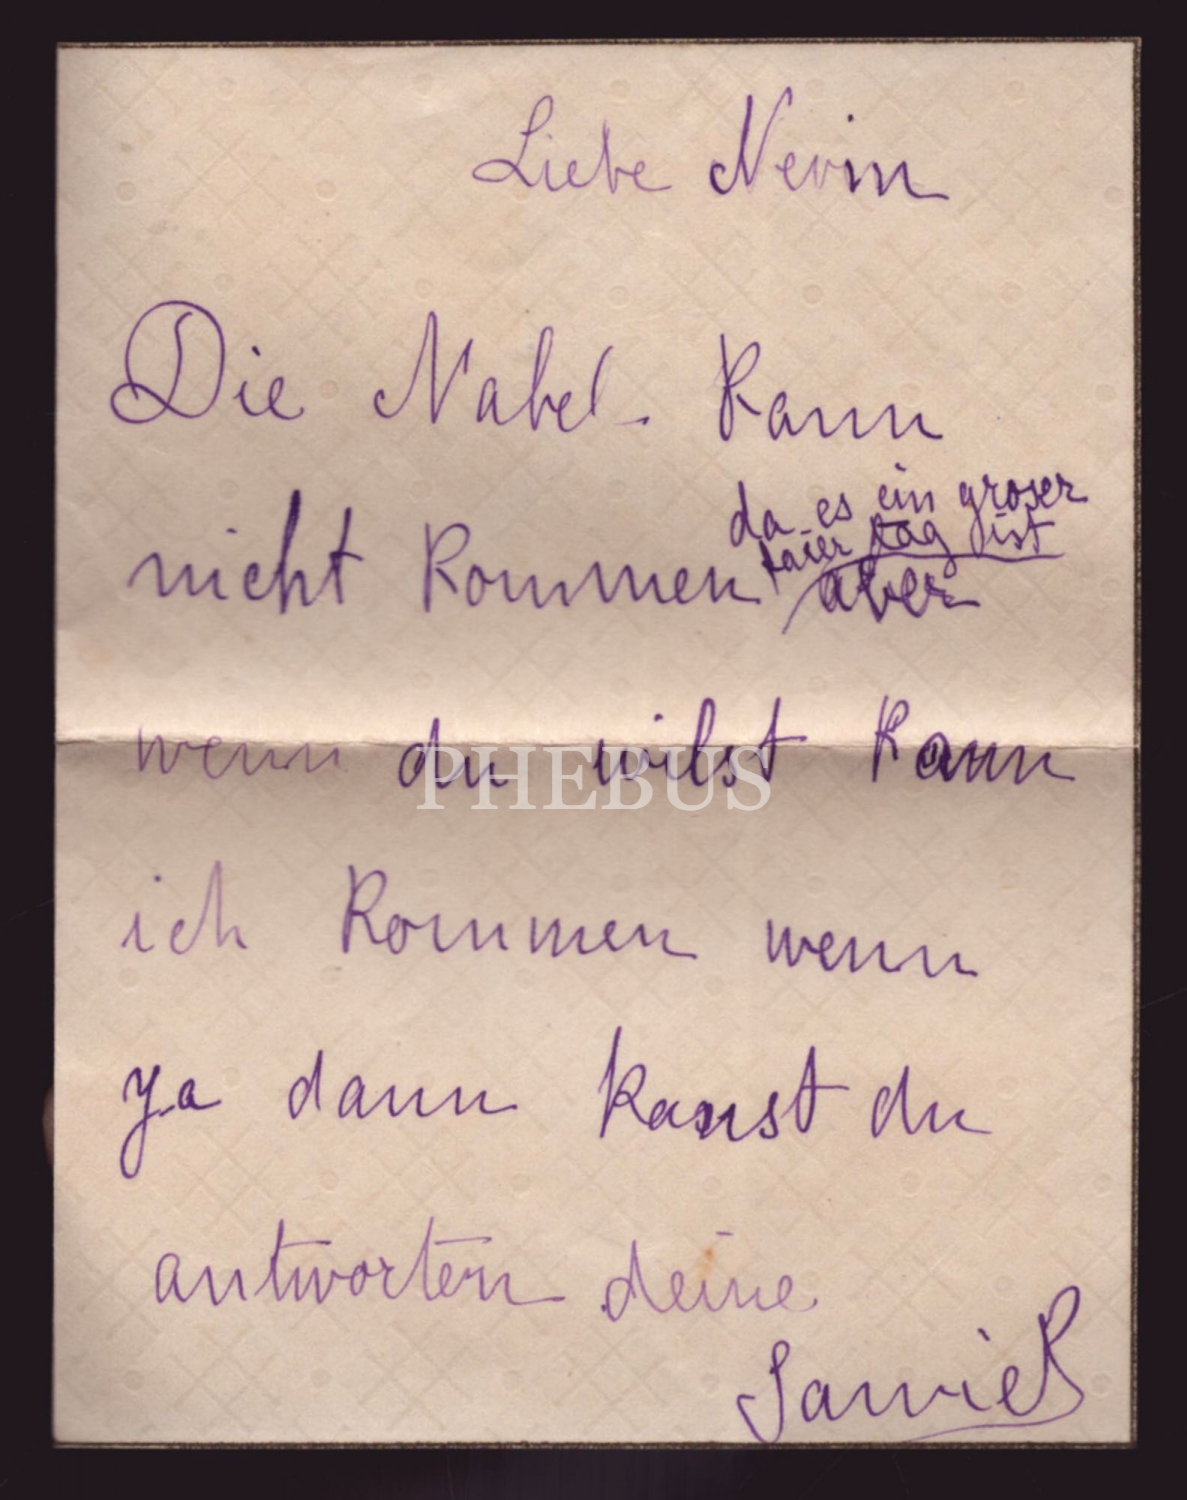 Liebe Nevin
Die Nabel. Kann
da es ein groser
faier tag ist
nicht Kommen aber
wenn du wilst Kann
PHEBUS
ich Kommen wenn
ya dann kanst du
antworten deine